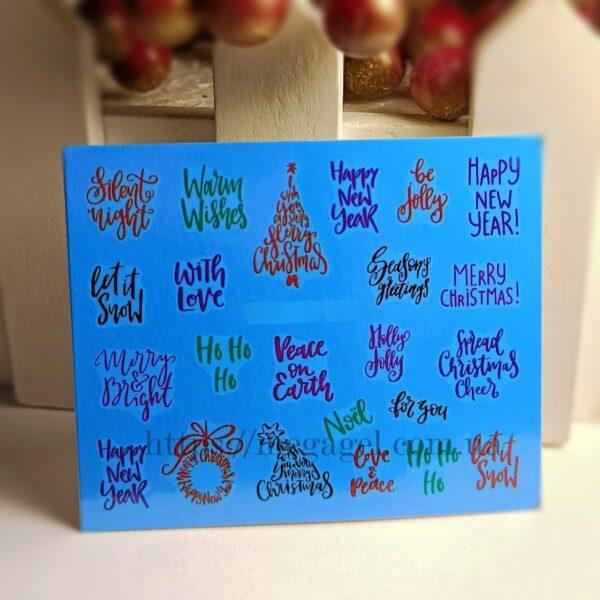 Silent
night
Warm
Wishes
I
wish
you
a very
Merry
Christmas
Happy
New
Year
be
Jolly
HAPPY
NEW
YEAR!
let it
Snow
With
Love
Season's
Greetings
MERRY
CHRISTMAS!
Merry
&
Bright
Ho Ho
Ho
Peace
on
Earth
Holly
Jolly
Spread
Christmas
Cheer
Noël
for you
Happy
New
Year
Merry Christmas
Happy New Year
I
wish
you a very
merry
Christmas
love
&
Peace
Ho Ho
Ho
let it
Snow
http://megagel.com.ua